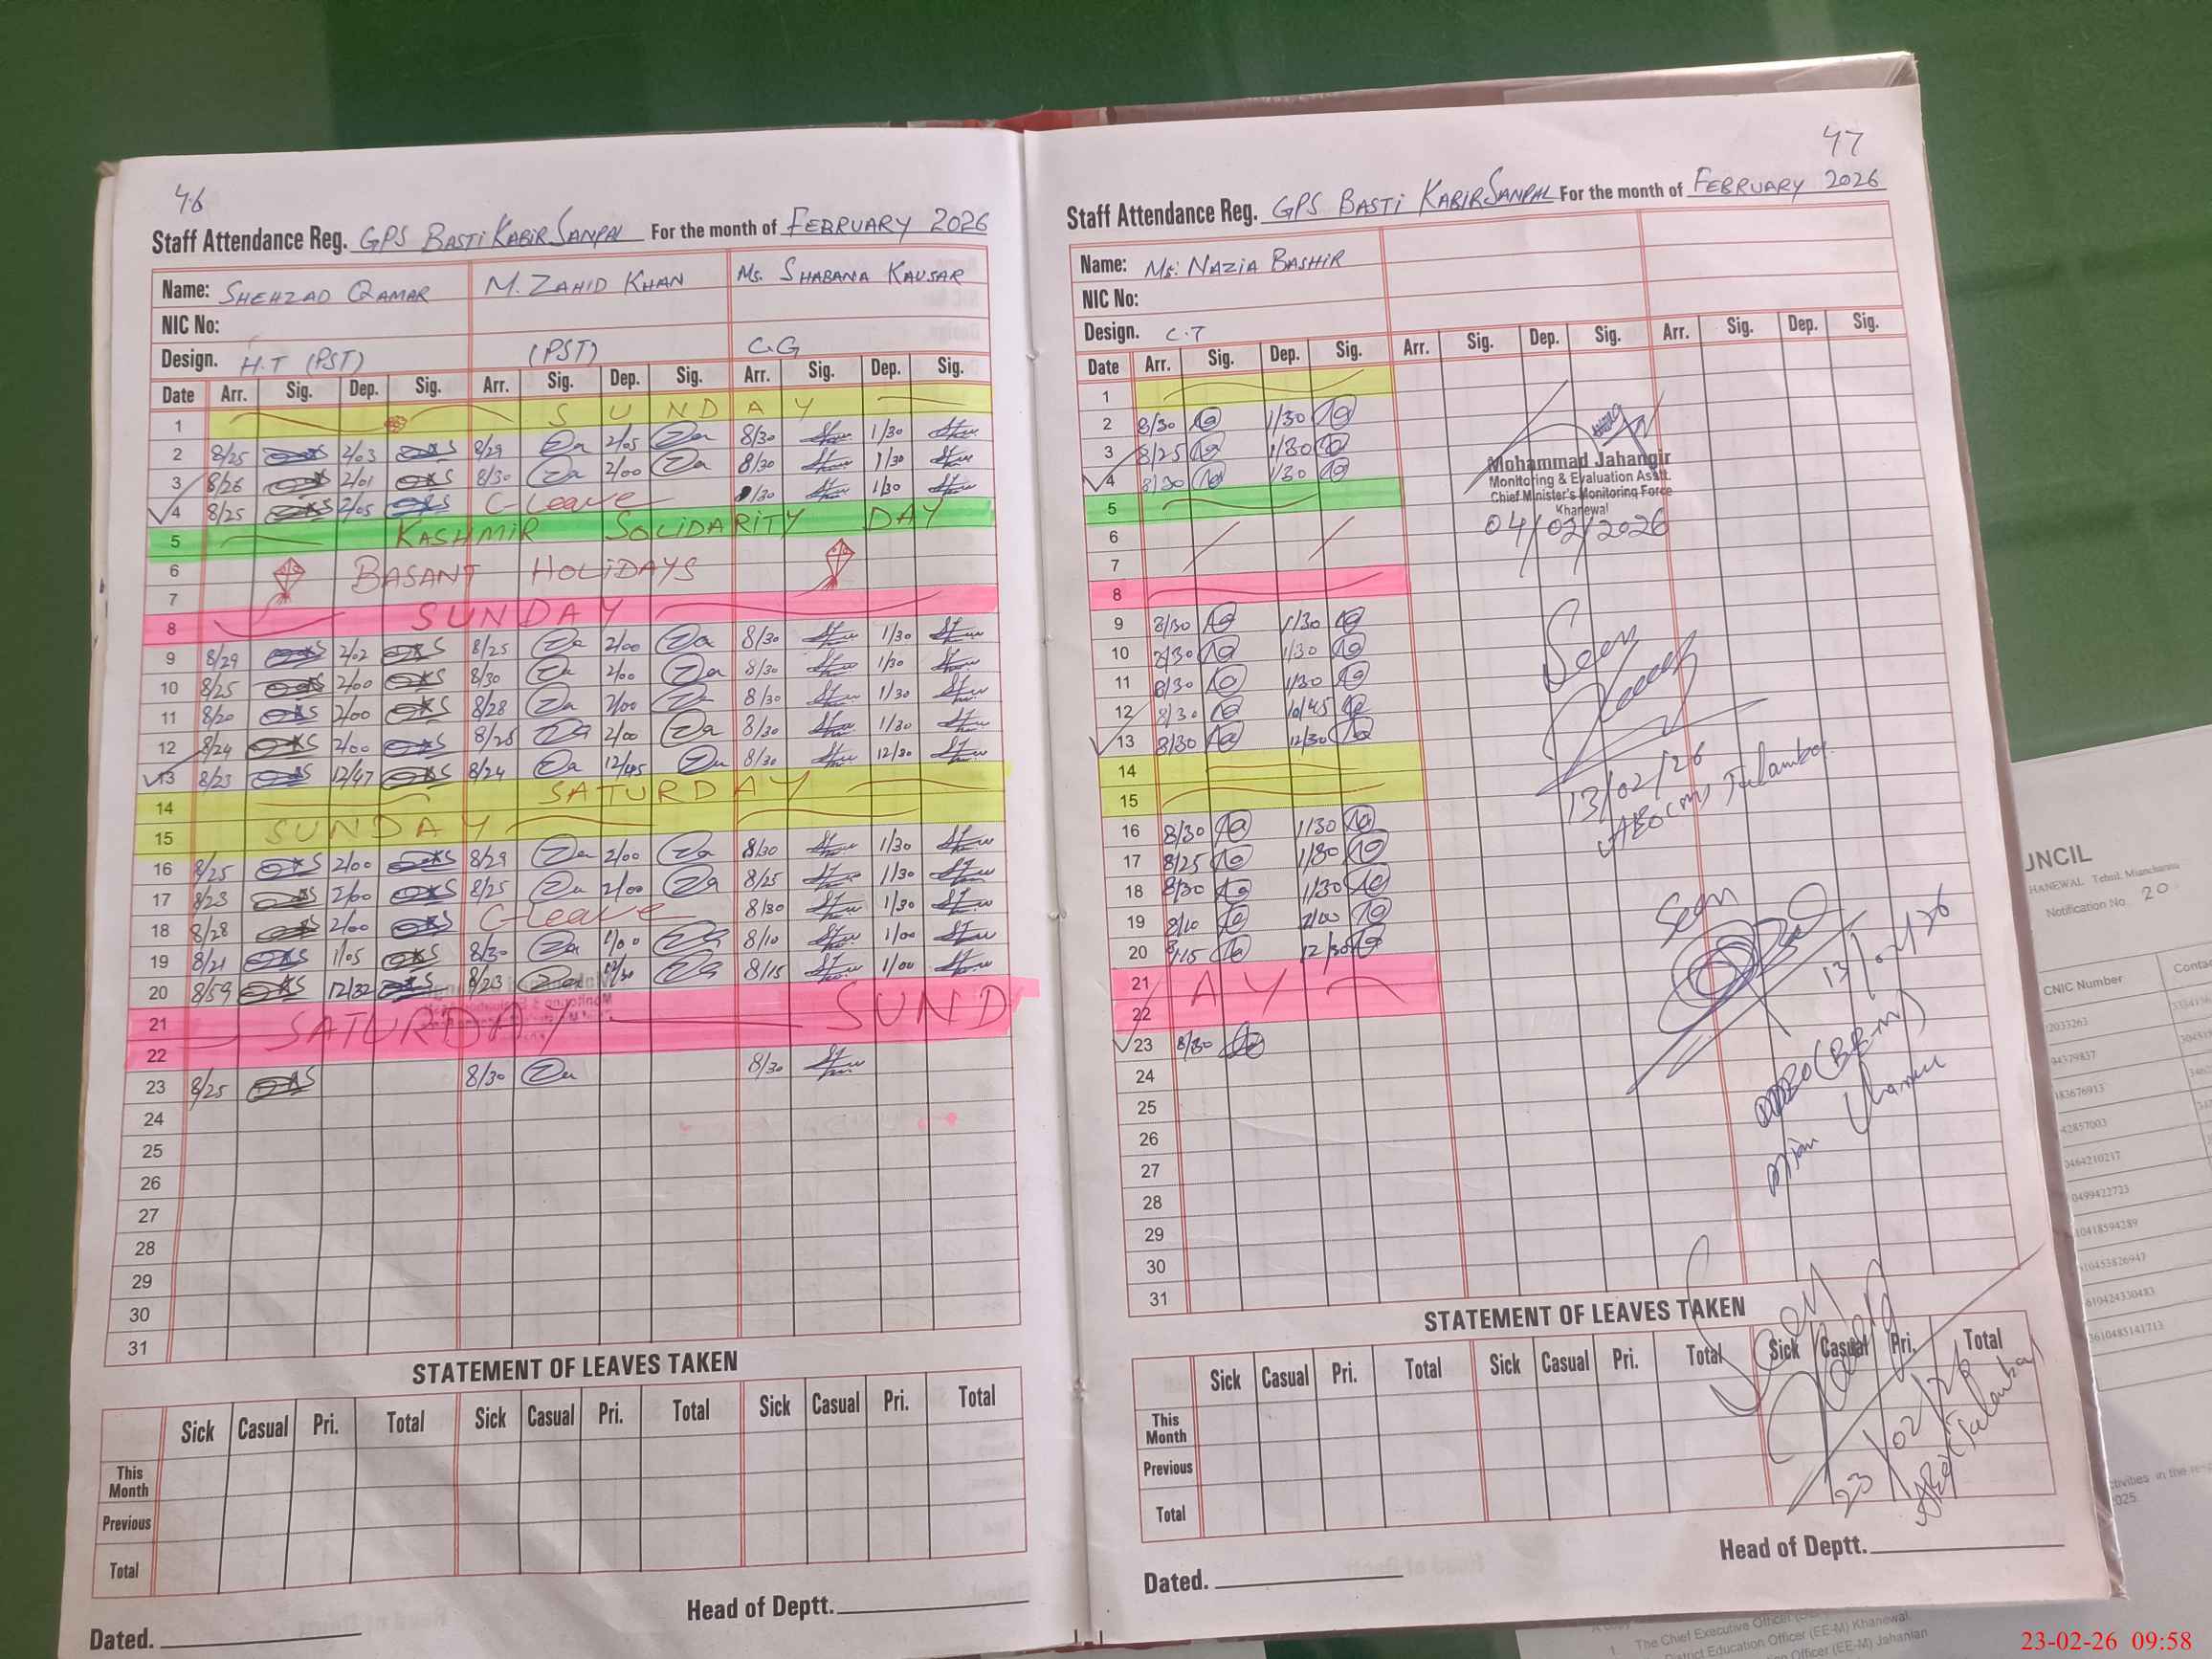 46
Staff Attendance Reg. GPS BASTI KABIR SANPAL For the month of FEBRUARY 2026
Name: SHEHZAD QAMAR M. ZAHID KHAN Ms. SHABANA KAUSAR
NIC No:
Design. H.T (PST) (PST) C.G
Date Arr. Sig. Dep. Sig. Arr. Sig. Dep. Sig. Arr. Sig. Dep. Sig.
1 SUNDAY
2 8/25 2/03 8/29 2/05 8/30 1/30
3 8/26 2/01 8/30 2/00 8/30 1/30
4 8/25 2/05 C-Leave /30 1/30
5 KASHMIR SOLIDARITY DAY
6 BASANT HOLIDAYS
7
8 SUNDAY
9 8/29 2/02 8/25 2/00 8/30 1/30
10 8/25 2/00 8/30 2/00 8/30 1/30
11 8/20 2/00 8/28 2/00 8/30 1/30
12 8/24 2/00 8/25 2/00 8/30 1/30
13 8/23 12/47 8/24 12/45 8/30 12/30
14 SATURDAY
15 SUNDAY
16 8/25 2/00 8/29 2/00 8/30 1/30
17 8/23 2/00 8/25 2/00 8/25 1/30
18 8/28 2/00 C-Leave 8/30 1/30
19 8/21 1/05 8/30 1/00 8/10 1/00
20 8/59 12/32 8/23 /30 8/15 1/00
21 SATURDAY SUND
22
23 8/25 8/30 8/30
24
25
26
27
28
29
30
31
STATEMENT OF LEAVES TAKEN
Sick Casual Pri. Total Sick Casual Pri. Total Sick Casual Pri. Total
This Month
Previous
Total
Head of Deptt.
Dated.
47
Staff Attendance Reg. GPS BASTI KABIR SANPAL For the month of FEBRUARY 2026
Name: Ms: NAZIA BASHIR
NIC No:
Design. C.T
Date Arr. Sig. Dep. Sig. Arr. Sig. Dep. Sig. Arr. Sig. Dep. Sig.
1
2 8/30 1/30
3 8/25 1/30
4 8/30 1/30
5
6
7
8
9 8/30 1/30
10 8/30 1/30
11 8/30 1/30
12 8/30 10/45
13 8/30 12/30
14
15
16 8/30 1/30
17 8/25 1/30
18 8/30 1/30
19 8/10 1/00
20 8/15 12/30
21 AY
22
23 8/30
24
25
26
27
28
29
30
31
Mohammad Jahangir
Monitoring & Evaluation Asstt.
Chief Minister's Monitoring Force
Khanewal
04/02/2026
Seen
13/02/26
AEO (M) Tulamba
Seen
Seen
23/02/26
STATEMENT OF LEAVES TAKEN
Sick Casual Pri. Total Sick Casual Pri. Total Sick Casual Pri. Total
This Month
Previous
Total
Head of Deptt.
Dated.
UNCIL
HANEWAL Tehsil Mianchannu
Notification No. 20
CNIC Number
12033263
94379837
183676913
42857003
0464210217
0499422723
10418594289
10453826947
610424330483
3610485141713
The Chief Executive Officer
Education Officer (EE-M) Khanewal.
Officer (EE-M) Jahanian
23-02-26 09:58